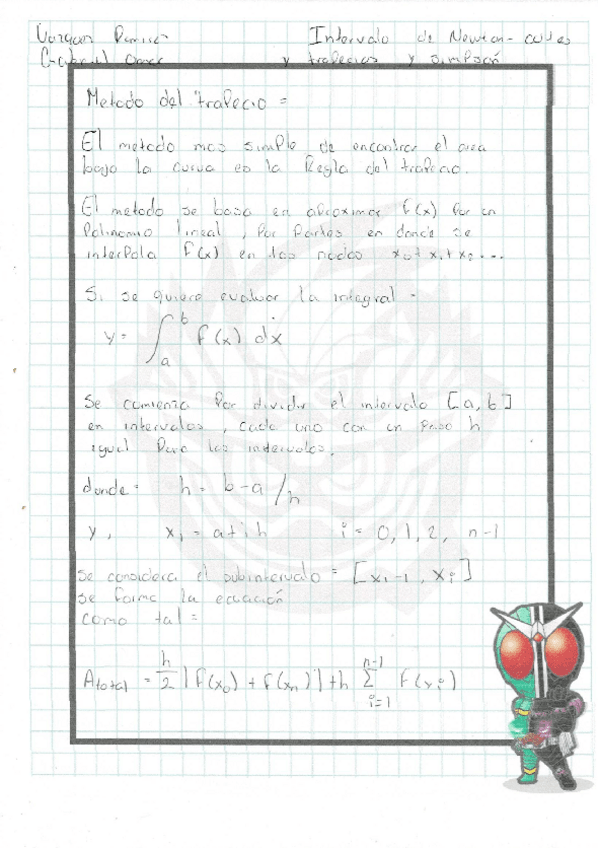 Vargan Ramirez
Intervalo de Newton-cotes
Gabriel Omar
y trapecios y simpson
Metodo del trapecio =
El metodo mas simple de encontrar el area
bajo la curva es la Regla del trapecio.
El metodo se basa en aproximar f(x) Por un
Polinomio lineal, Por Partes en donde se
interpola f(x) en los nodos x₀ + x₁ + x₂ ...
Si se quiere evaluar la integral =
y = ∫ₐᵇ f(x) dx
Se comienza Por dividir el intervalo [a, b]
en intervalos, cada uno con un paso h
igual Para los intervalos.
donde = h = b-a/n
y, xᵢ = a+ih i = 0, 1, 2, n-1
se considera el subintervalo = [xᵢ-1, xᵢ]
se forma la ecuación
como tal =
Atotal = h/2 [f(x₀) + f(xₙ)] + h Σ f(xᵢ)
n-1
i=1